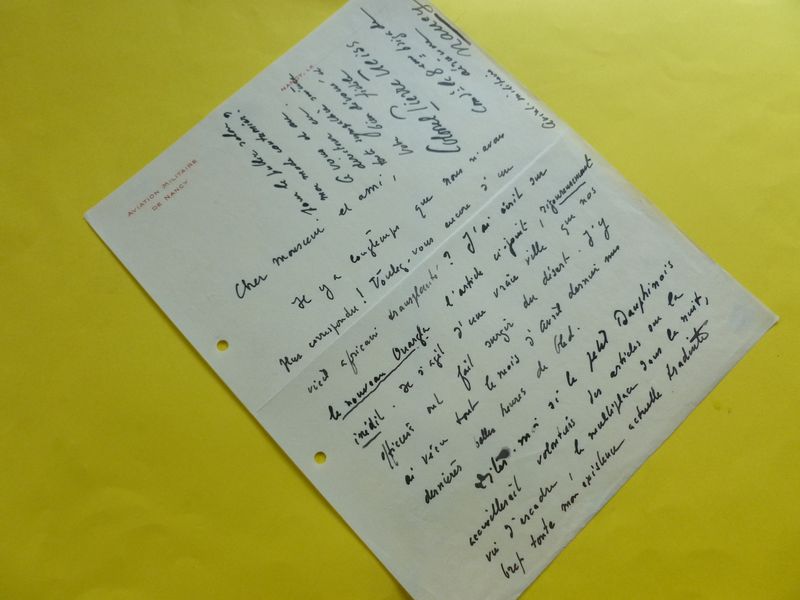 AVIATION MILITAIRE
DE NANCY
NANCY, LE
Cher monsieur et ami,
Il y a longtemps que nous n'avons
plus correspondu ! Voulez-vous encore d'un
vieil africain transplanté ? J'ai écrit sur
le nouveau Ouargla l'article ci-joint, rigoureusement
inédit. Il s'agit d'une vraie ville que nos
officiers ont fait surgir du désert. J'y
ai vécu tout le mois d'Avril dernier mes
dernières belles heures de Bled.
Dites moi si le petit Dauphinois
accueillerait volontiers des articles sur la
vie d'escadre, le multiplace dans la nuit,
bref toute mon existence actuelle
à vous et au
bien dévoué et
fidèle
Colonel Pierre Weiss
Nancy